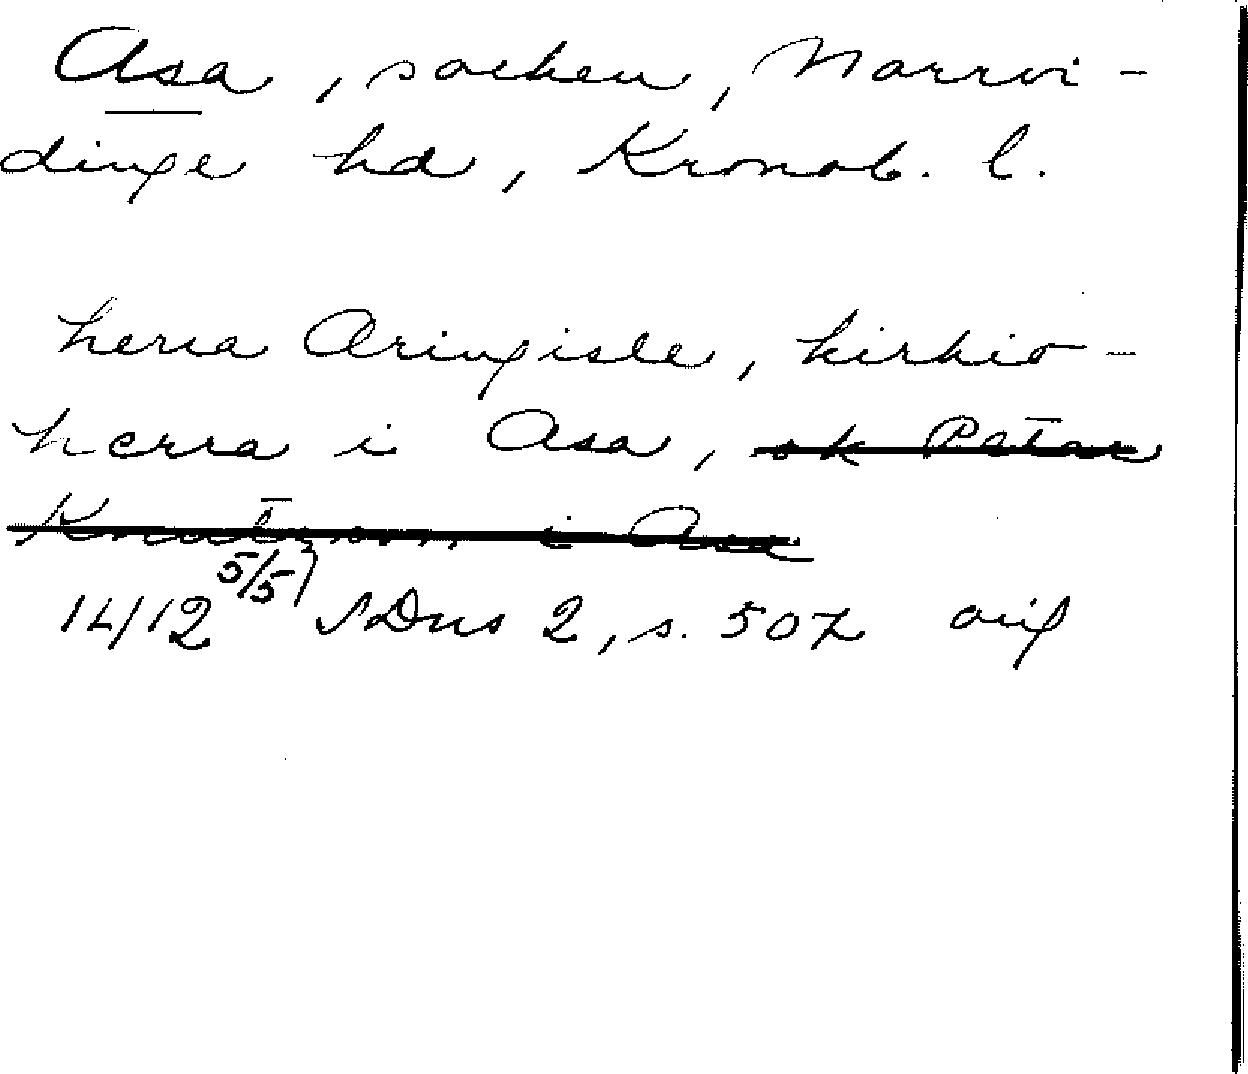 Asa, socken, Norrvi-
dinge hd, Kronob. l.
herra Aringisle, kirkio-
herra i Asa, ok Petar
Knutsson i Asa
1412 5/5 SDns 2, s. 507 orig